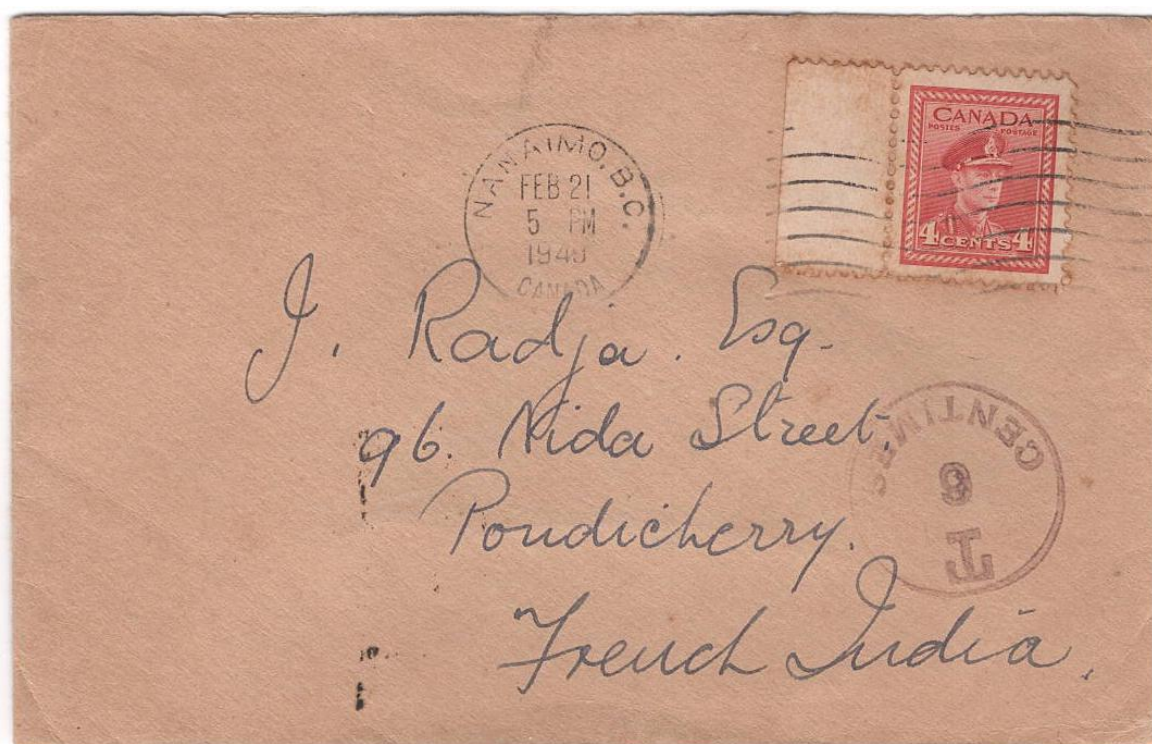 NANAIMO, B.C.
FEB 21
5 PM
1949
CANADA
CANADA
POSTES POSTAGE
4 CENTS 4
J. Radja. Esq.
96. Nida Street,
Pondicherry.
French India.
T
CENTIMES